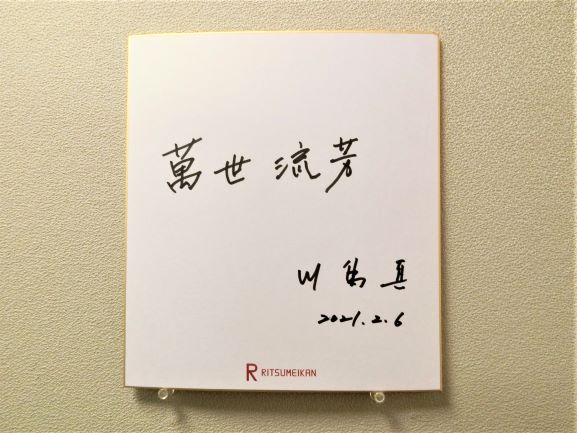 萬世流芳
川島真
2021.2.6
R RITSUMEIKAN